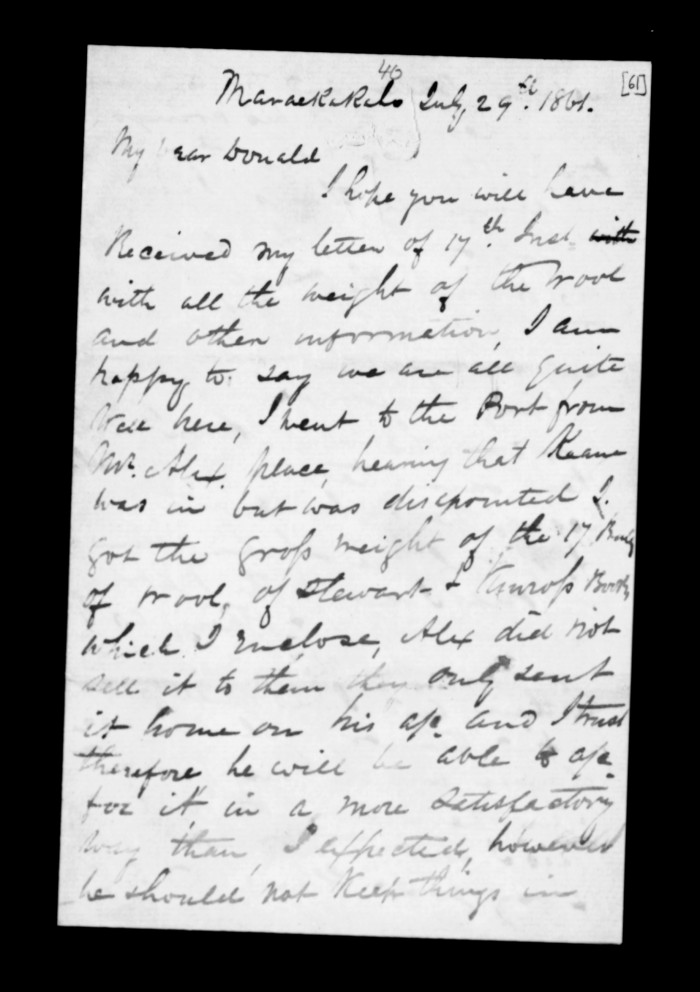 40
[61]
Maraekakaho July 29th. 1861.
My Dear Donald
I hope you will have
Received my letter of 17th Inst with
with all the weight of the Wool
and other information, I am
happy to say we are all quite
well here, I went to the Port from
Mr. Alex. place, hearing that Keane
was in but was disapointed I.
got the gross weight of the 17 Bales
of wool, of Stewart & Kinross Books
which I Enclose, Alex did not
sell it to them they only sent
it home on his a/c and I trust
therefore he will be able to a/c
for it in a more satisfactory
way than I expected, however
he should not Keep things in